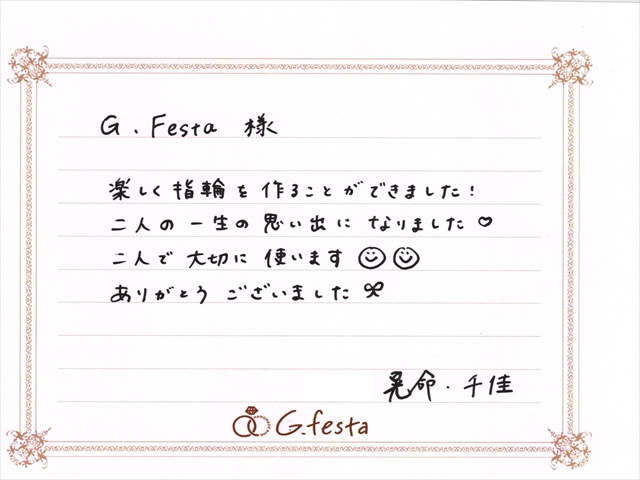 G. Festa 様
楽しく指輪を作ることができました!
二人の一生の思い出になりました♡
二人で大切に使います
ありがとうございました
晃命・千佳
G.festa